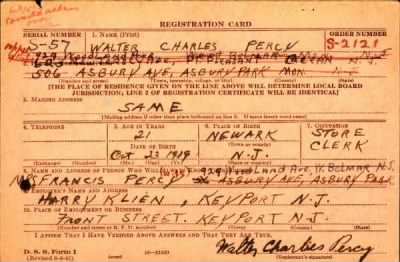 REGISTRATION CARD
SERIAL NUMBER 1. NAME (Print) ORDER NUMBER
S-57 WALTER CHARLES PERCY S-2121
506 ASBURY AVE, ASBURY PARK MON. N.J.
[THE PLACE OF RESIDENCE GIVEN ON THE LINE ABOVE WILL DETERMINE LOCAL BOARD
JURISDICTION; LINE 2 OF REGISTRATION CERTIFICATE WILL BE IDENTICAL]
3. MAILING ADDRESS
SAME
[Mailing address if other than place indicated on line 2. If same insert word same]
4. TELEPHONE 5. AGE IN YEARS 6. PLACE OF BIRTH 7. OCCUPATION
21 NEWARK STORE
DATE OF BIRTH (Town or county) CLERK
OCT 23 1919 N.J.
(Mo.) (Day) (Yr.) (State or country)
8. NAME AND ADDRESS OF PERSON WHO WILL ALWAYS KNOW YOUR ADDRESS
929 WOODLAND AVE, W. BELMAR N.J.
FRANCIS PERCY ASBURY AVE, ASBURY PARK
9. EMPLOYER'S NAME AND ADDRESS
HARRY KLIEN, KEYPORT N.J.
10. PLACE OF EMPLOYMENT OR BUSINESS
FRONT STREET. KEYPORT N.J.
I AFFIRM THAT I HAVE VERIFIED ABOVE ANSWERS AND THAT THEY ARE TRUE.
D. S. S. Form 1
Walter Charles Percy